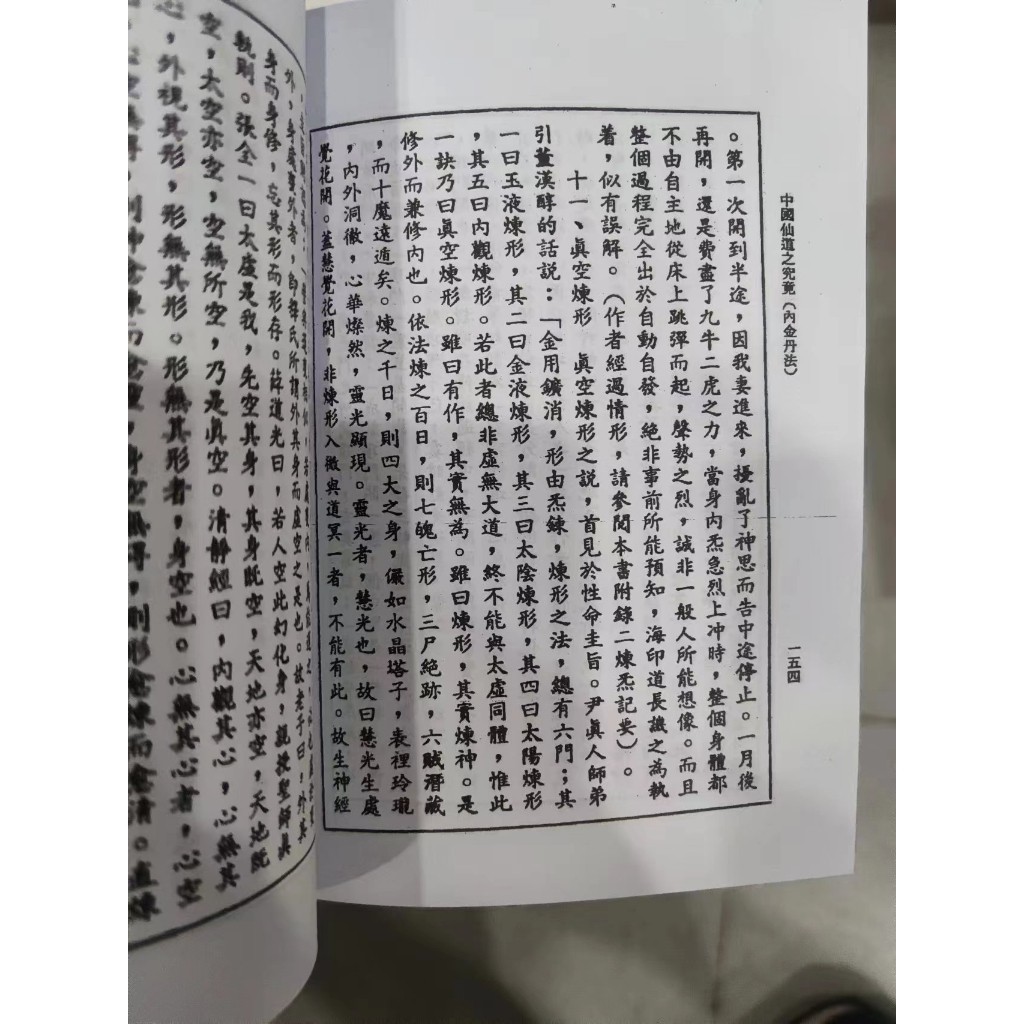 中國仙道之究竟（內金丹法）
一五四
。第一次開到半途，因我妻進來，擾亂了神思而告中途停止。一月後
再開，還是費盡了九牛二虎之力，當身內炁急烈上冲時，整個身體都
不由自主地從床上跳彈而起，聲勢之烈，誠非一般人所能想像。而且
整個過程完全出於自動自發，絕非事前所能預知，海印道長譏之為執
着，似有誤解。（作者經過情形，請參閱本書附錄二煉炁記要）。
十一、眞空煉形　眞空煉形之說，首見於性命圭旨。尹眞人師弟
引董漢醇的話說：「金用鑛消，形由炁鍊，煉形之法，總有六門；其
一曰玉液煉形，其二曰金液煉形，其三曰太陰煉形，其四曰太陽煉形
，其五曰內觀煉形。若此者總非虛無大道，終不能與太虛同體，惟此
一訣乃曰眞空煉形。雖曰有作，其實無為。雖曰煉形，其實煉神。是
修外而兼修內也。依法煉之百日，則七魄亡形，三尸絕跡，六賊潛藏
，而十魔遠遁矣。煉之千日，則四大之身，儼如水晶塔子，表裡玲瓏
，內外洞徹，心華燦然，靈光顯現。靈光者，慧光也，故曰慧光生處
覺花開。蓋慧覺花開，非煉形入微與道冥一者，不能有此。故生神經
身而身修，忘其形而形存。薛道光曰，若人空此幻化身，親授聖師眞
執則。張全一曰太虛是我，先空其身，其身既空，天地亦空，天地既
空，太空亦空，空無所空，乃是眞空。清靜經曰，內觀其心，心無其
心，外視其形，形無其形。形無其形者，身空也。心無其心者，心空